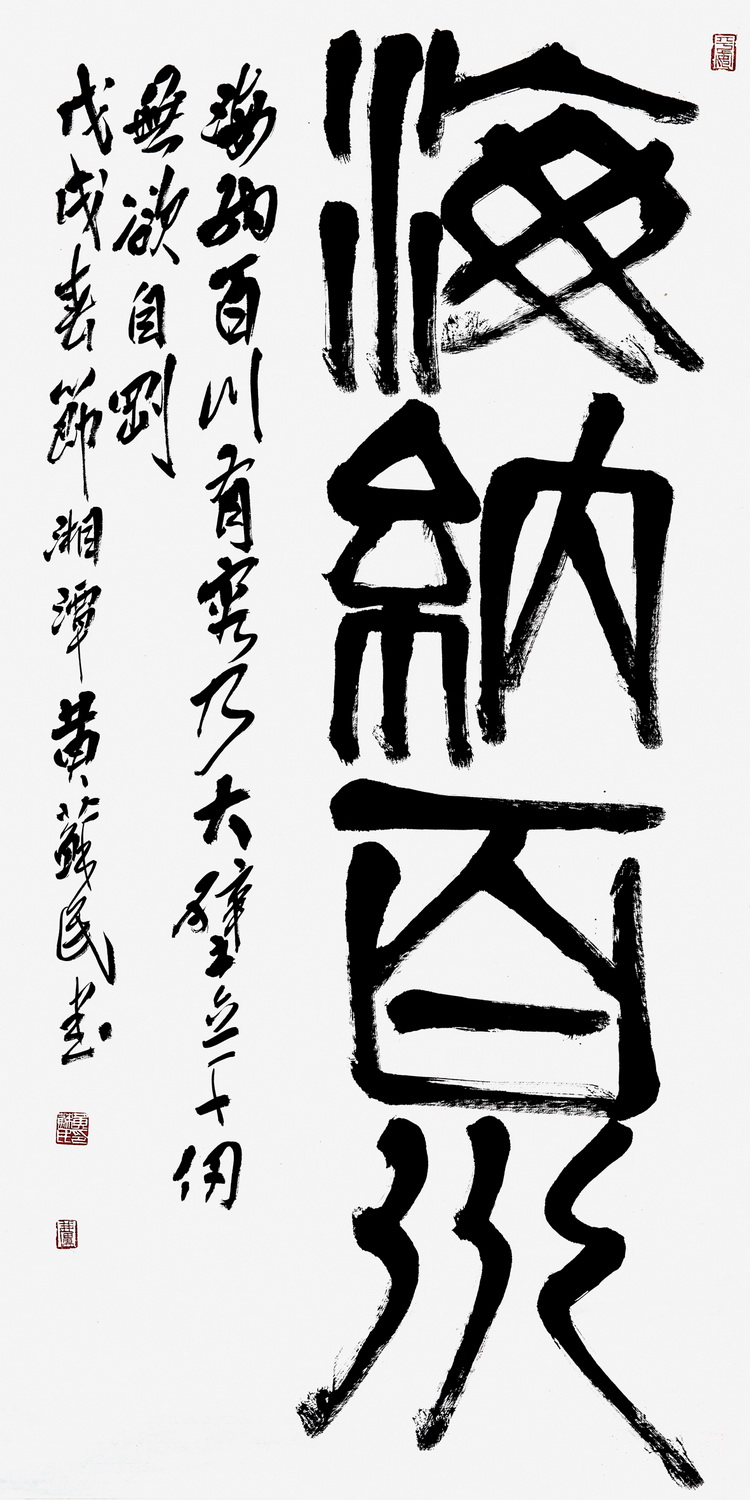 海納百川
海納百川有容乃大壁立千仞
無欲自剛
戊戌春節湘潭黄蘇民書